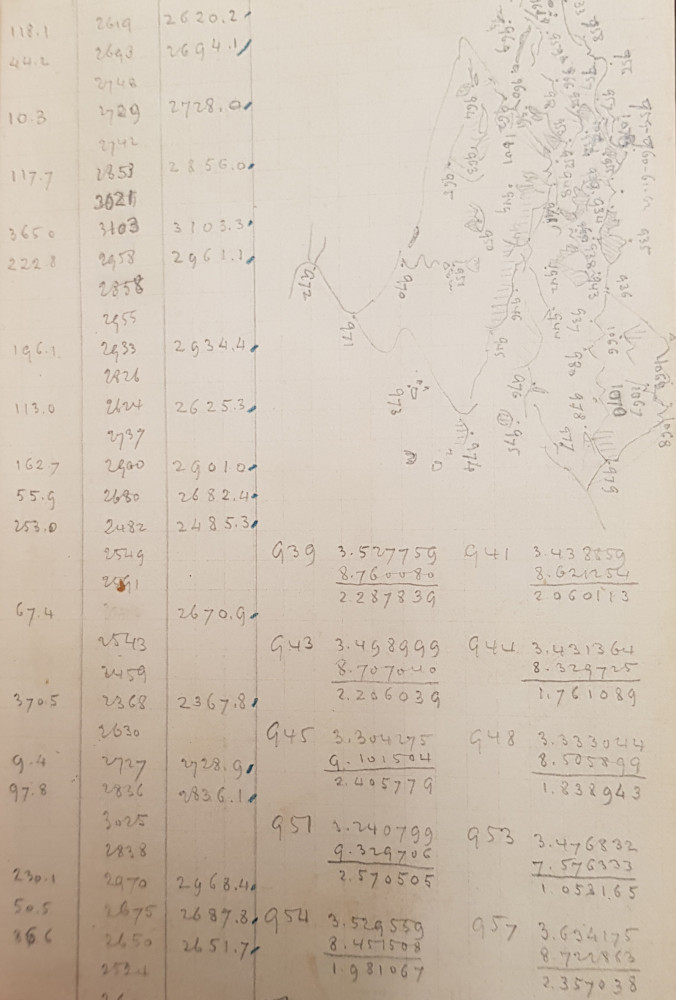 118.1 2619 2620.2
44.2 2693 2694.1
2740
10.3 2729 2728.0
2742
117.7 2853 2856.0
3021
365.0 3103 3103.3
222.8 2958 2961.1
2858
2955
196.1 2933 2934.4
2826
113.0 2624 2625.3
2737
162.7 2900 2901.0
55.9 2680 2682.4
253.0 2482 2485.3
2549
67.4 2670.9
2543
2459
370.5 2368 2367.8
2630
9.4 2727 2728.9
97.8 2836 2836.1
3025
2838
230.1 2970 2968.4
50.5 2675 2687.8
86.6 2650 2651.7
939 3.527759
8.760080
2.287839
941 3.438859
8.621254
2.060113
943 3.498999
8.707040
2.206039
944 3.431364
8.329725
1.761089
945 3.304275
9.101504
2.405779
948 3.333044
8.505899
1.838943
951 3.240799
9.329706
2.570505
953 3.476832
7.576333
1.053165
954 3.529559
8.451508
1.981067
957 3.634175
8.722863
2.357038
972
971
970
973
974
975
976
945
946
965
963
950
951
942
944
937
980
978
977
979
1066
1070
1067
1068
936
935
943
1001
952